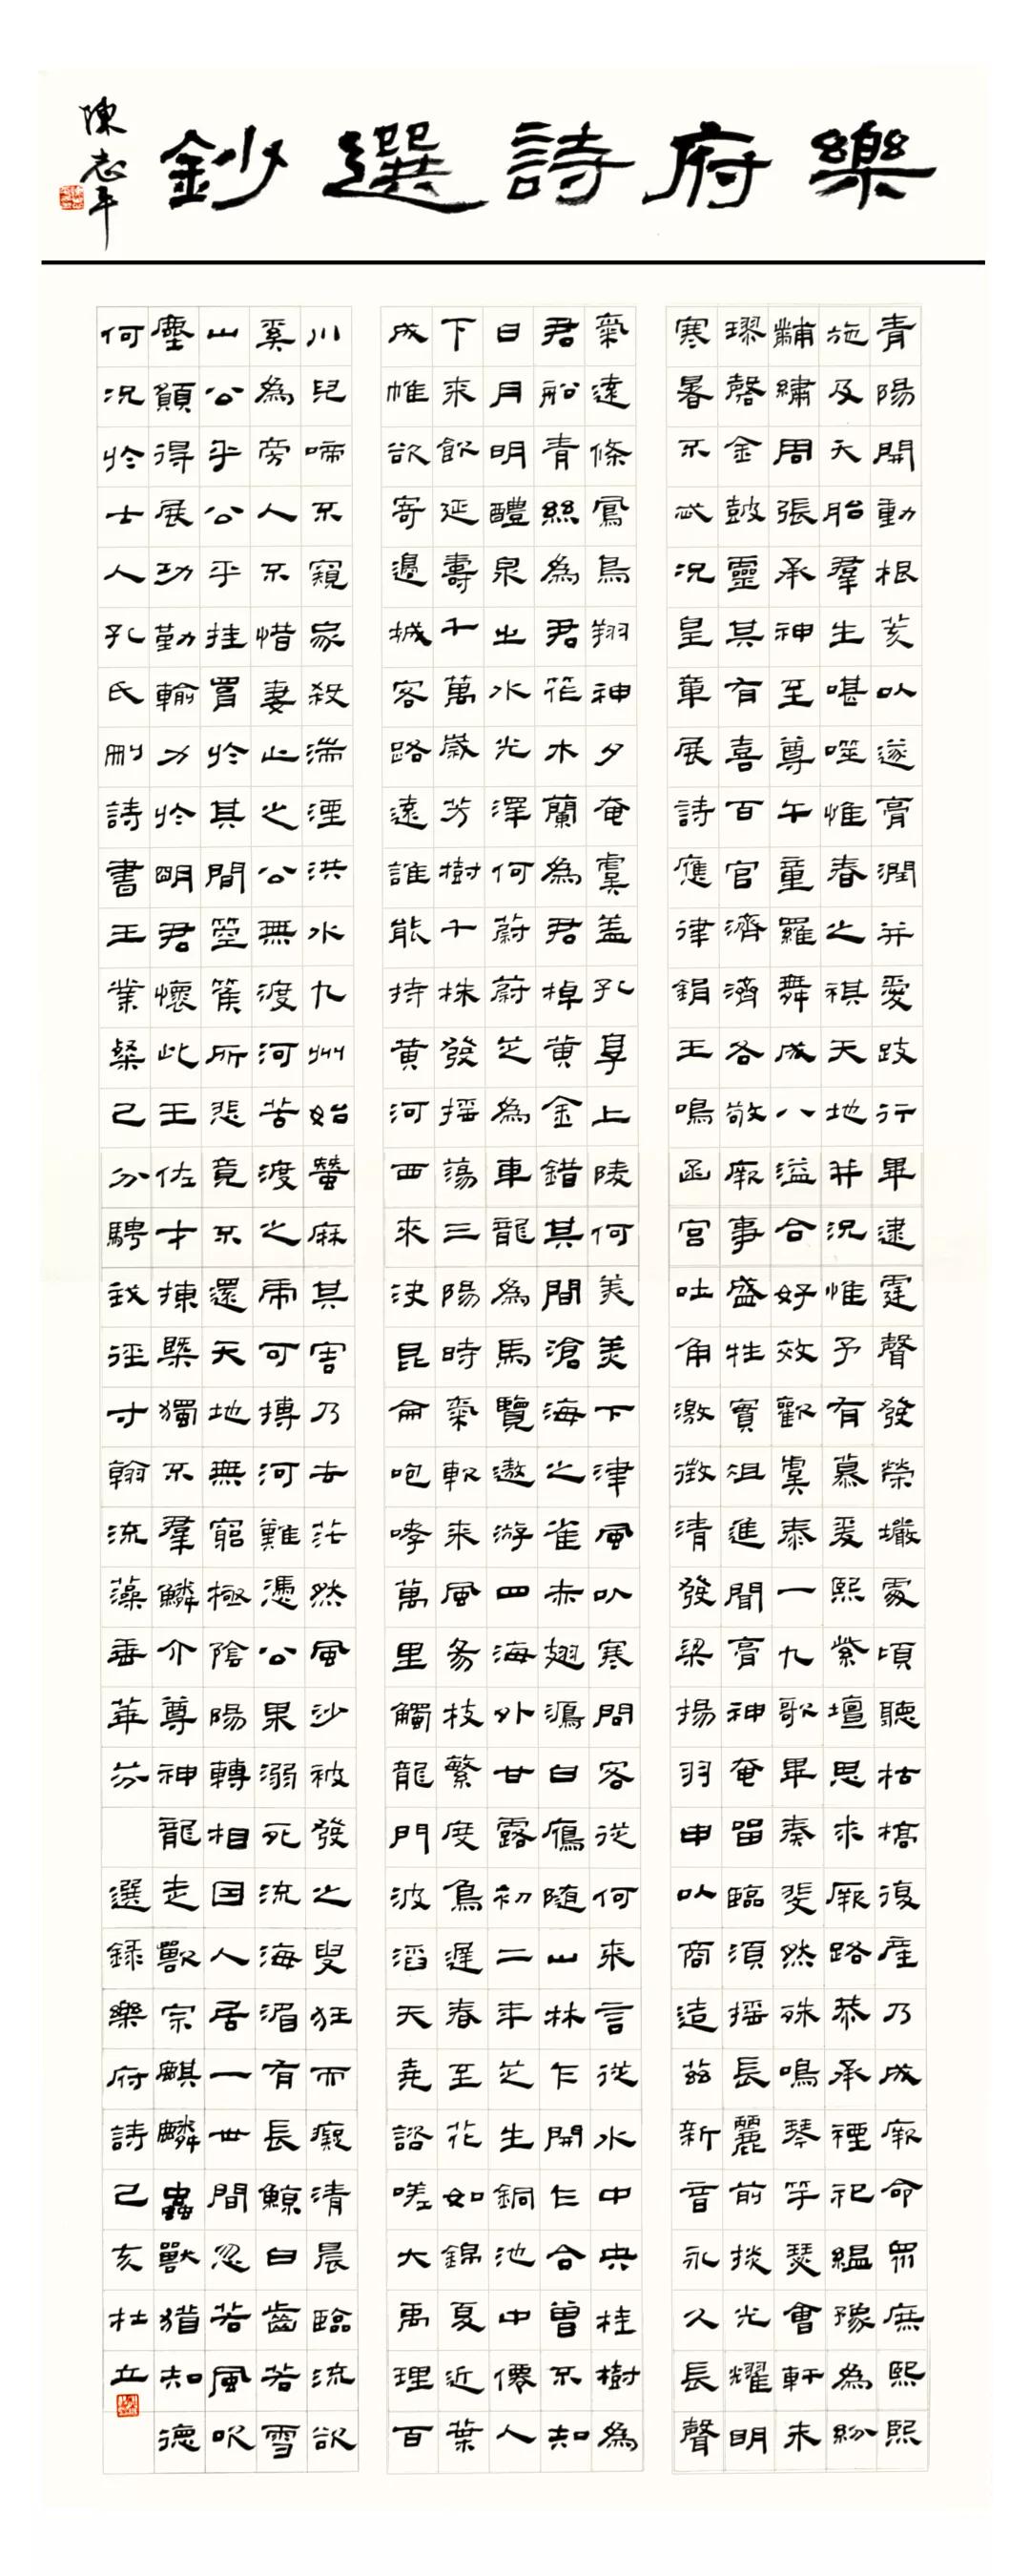 樂府詩選鈔
陳志平
青陽開動根荄以遂膏潤并愛跂行畢逮霆聲發榮壧處頃聽枯槁復產乃成厥命眾庶熙熙
施及夭胎羣生啿噬惟春之祺天地并況惟予有慕爰熙紫壇思求厥路恭承禋祀縕豫為紛
黼繡周張承神至尊午童羅舞成八溢合好效歡虞泰一九歌畢奏斐然殊鳴琴竽瑟會軒朱
璆磬金鼓靈其有喜百官濟濟各敬厥事盛牲實俎進聞膏神奄留臨須搖長麗前掞光耀明
寒暑不忒況皇章展詩應律鋗玉鳴函宮吐角激徵清發梁揚羽申以商造茲新音永久長聲
氣遠條鳳鳥翔神夕奄虞蓋孔享上陵何美美下津風以寒問客從何來言從水中央桂樹為
君船青絲為君笮木蘭為君棹黃金錯其間滄海之雀赤翅鴻白鴈隨山林乍開乍合曾不知
日月明醴泉之水光澤何蔚蔚芝為車龍為馬覽遨游四海外甘露初二年芝生銅池中僊人
下來飲延壽千萬歲芳樹千株發搖蕩三陽時氣軟來風易枝繁度鳥遲春至花如錦夏近葉
成帷欲寄邊城客路遠誰能持黃河西來決昆侖咆哮萬里觸龍門波滔天堯諮嗟大禹理百
川兒啼不窺家殺湍湮洪水九州始蠶麻其害乃去茫然風沙被發之叟狂而癡清晨臨流欲
奚為旁人不惜妻止之公無渡河苦渡之虎可搏河難憑公果溺死流海湄有長鯨白齒若雪
山公乎公乎挂罥於其間箜篌所悲竟不還天地無窮極陰陽轉相因人居一世間忽若風吹
塵願得展功勤輸力於明君懷此王佐才慷慨獨不羣鱗介尊神龍走獸宗麒麟蟲獸猶知德
何況於士人孔氏刪詩書王業粲已分騁我徑寸翰流藻垂華芬 選錄樂府詩己亥杜立